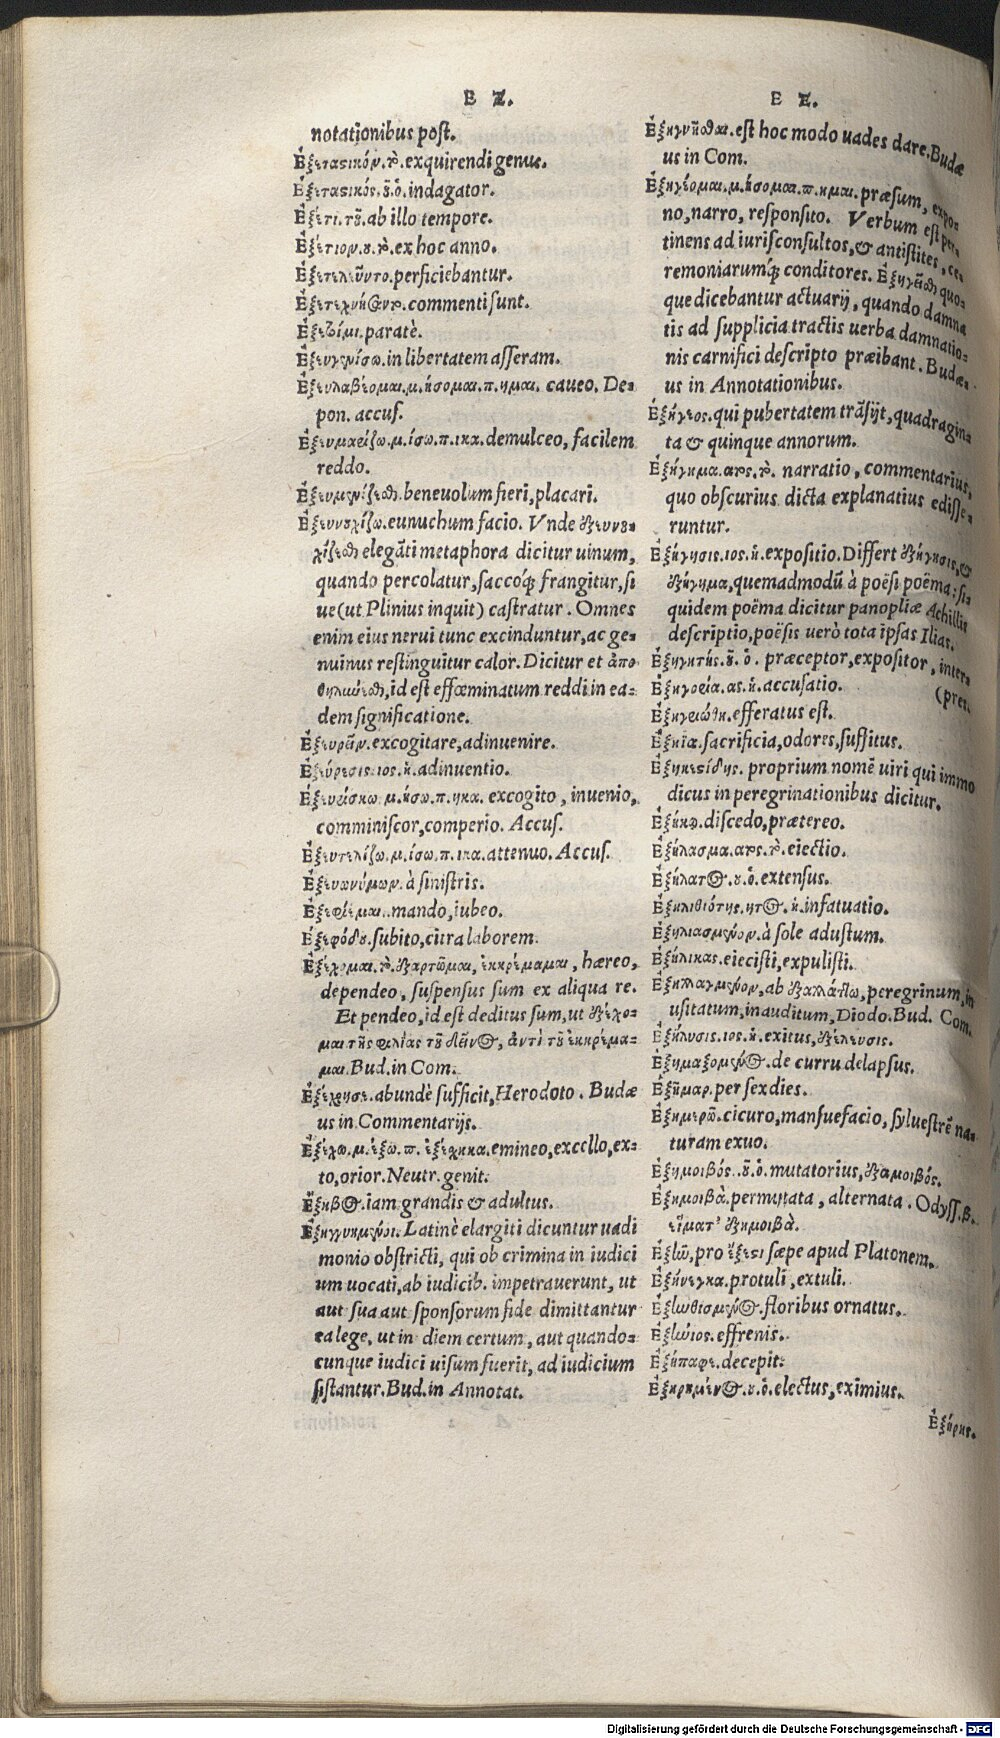 E Z.
notationibus post.
Ἐξεταστικόν. τὸ. exquirendi genus.
Ἐξεταστικός. οῦ. ὁ. indagator.
Ἐξέτι. τοῦ. ab illo tempore.
Ἐξέτιον. ου. τὸ. ex hoc anno.
Ἐξετελεῦντο. perficiebantur.
Ἐξετεχνήσαντο. commenti sunt.
paratè.
Ἐξευγενίσω. in libertatem asseram.
Ἐξευλαβέομαι. μ. ήσομαι. π. ημαι. caueo. De-
pon. accus.
Ἐξευμαρίζω. μ. ίσω. π. ικα. demulceo, facilem
reddo.
Ἐξευμενίζεσθαι. beneuolum fieri, placari.
Ἐξευνουχίζω. eunuchum facio. Vnde ἐξευνου-
χίζεσθαι eleganti metaphora dicitur uinum,
quando percolatur, saccoq́; frangitur, si
ue (ut Plinius inquit) castratur. Omnes
enim eius nerui tunc excinduntur, ac ge-
nuinus restinguitur calor. Dicitur et ἀπο
θηλύνεσθαι, id est effœminatum reddi in ea-
dem significatione.
Ἐξευρᾶν. excogitare, adinuenire.
Ἐξεύρεσις. ιος. ἡ. adinuentio.
Ἐξευρίσκω. μ. ήσω. π. ηκα. excogito, inuenio,
comminiscor, comperio. Accus.
Ἐξευτελίζω. μ. ίσω. π. ικα. attenuo. Accus.
Ἐξευωνύμων. à sinistris.
Ἐξεφίεμαι. mando, iubeo.
Ἐξεφόδου. subito, citra laborem.
Ἐξέχομαι. τὸ. ἐξαρτῶμαι, ἐκκρέμαμαι, hæreo,
dependeo, suspensus sum ex aliqua re.
Et pendeo, id est deditus sum, ut ἐξέχο-
μαι τῆς φιλίας τοῦ δεῖνος, ἀντὶ τοῦ ἐκκρέμα-
μαι. Bud. in Com.
Ἐξέχρησε. abundè sufficit, Herodoto. Budæ
us in Commentarijs.
Ἐξέχω. μ. ἕξω. π. ἐξέχηκα. emineo, excello, ex-
to, orior. Neutr. genit.
Ἔξηβος. iam grandis & adultus.
Ἐξηγγυημένοι. Latinè elargiti dicuntur uadi
monio obstricti, qui ob crimina in iudici
um uocati, ab iudicib. impetrauerunt, ut
aut sua aut sponsorum fide dimittantur
ea lege, ut in diem certum, aut quando-
cunque iudici uisum fuerit, ad iudicium
sistantur. Bud. in Annotat.
E Z.
Ἐξηγυῆσθαι. est hoc modo uades dare. Budæ
us in Com.
Ἐξηγέομαι. μ. ήσομαι. π. ημαι. præsum, expo-
no, narro, responsito. Verbum est per-
tinens ad iurisconsultos, & antistites, ce-
remoniarumq́; conditores. Ἐξηγεῖσθαι quo-
que dicebantur actuarij, quando damna
tis ad supplicia tractis uerba damnatio-
nis carnifici descripto præibant. Budæ-
us in Annotationibus.
Ἐξήγιος. qui pubertatem trāsijt, quadragin
ta & quinque annorum.
Ἐξήγημα. ατος. τὸ. narratio, commentarius,
quo obscurius dicta explanatius edisse-
runtur.
Ἐξήγησις. ιος. ἡ. expositio. Differt ἐξήγησις, &
ἐξήγημα, quemadmodū à poësi poëma: si-
quidem poëma dicitur panopliæ Achillis
descriptio, poësis uerò tota ipsas Ilias.
Ἐξηγητής. οῦ. ὁ. præceptor, expositor, inter-
(pres.
Ἐξηγορία. ας. ἡ. accusatio.
Ἐξηγριώθη. efferatus est.
sacrificia, odores, suffitus.
Ἐξηκεστίδης. proprium nomē uiri qui immo
dicus in peregrinationibus dicitur.
Ἐξήκω. discedo, prætereo.
Ἐξήλασμα. ατος. τὸ. eiectio.
Ἐξήλατος. ου. ὁ. extensus.
Ἐξηλιθιότης. ητος. ἡ. infatuatio.
Ἐξηλιασμένον. à sole adustum.
Ἐξήλικας. eiecisti, expulisti.
Ἐξηλλαγμένον, ab ἐξαλλάττω, peregrinum, in
usitatum, inauditum, Diodo. Bud. Com.
Ἐξήλυσις. ιος. ἡ. exitus, ἐξέλευσις.
Ἐξημαξομένος. de curru delapsus.
Ἐξῆμαρ. per sex dies.
Ἐξημερῶ. cicuro, mansuefacio, syluestrē na-
turam exuo.
Ἐξημοιβός. οῦ. ὁ. mutatorius, ἐξαμοιβός.
Ἐξημοιβὰ. permutata, alternata. Odyss. β.
εἵματ' ἐξημοιβὰ.
Ἐξῆν, pro ἔξεστι sæpe apud Platonem.
Ἐξήνεγκα. protuli, extuli.
Ἐξηνθισμένος. floribus ornatus.
Ἐξήνιος. effrenis.
Ἐξήπαφε. decepit:
Ἐξηρημένος. ου. ὁ. electus, eximius.
Ἐξήρης.
Digitalisierung gefördert durch die Deutsche Forschungsgemeinschaft - DFG